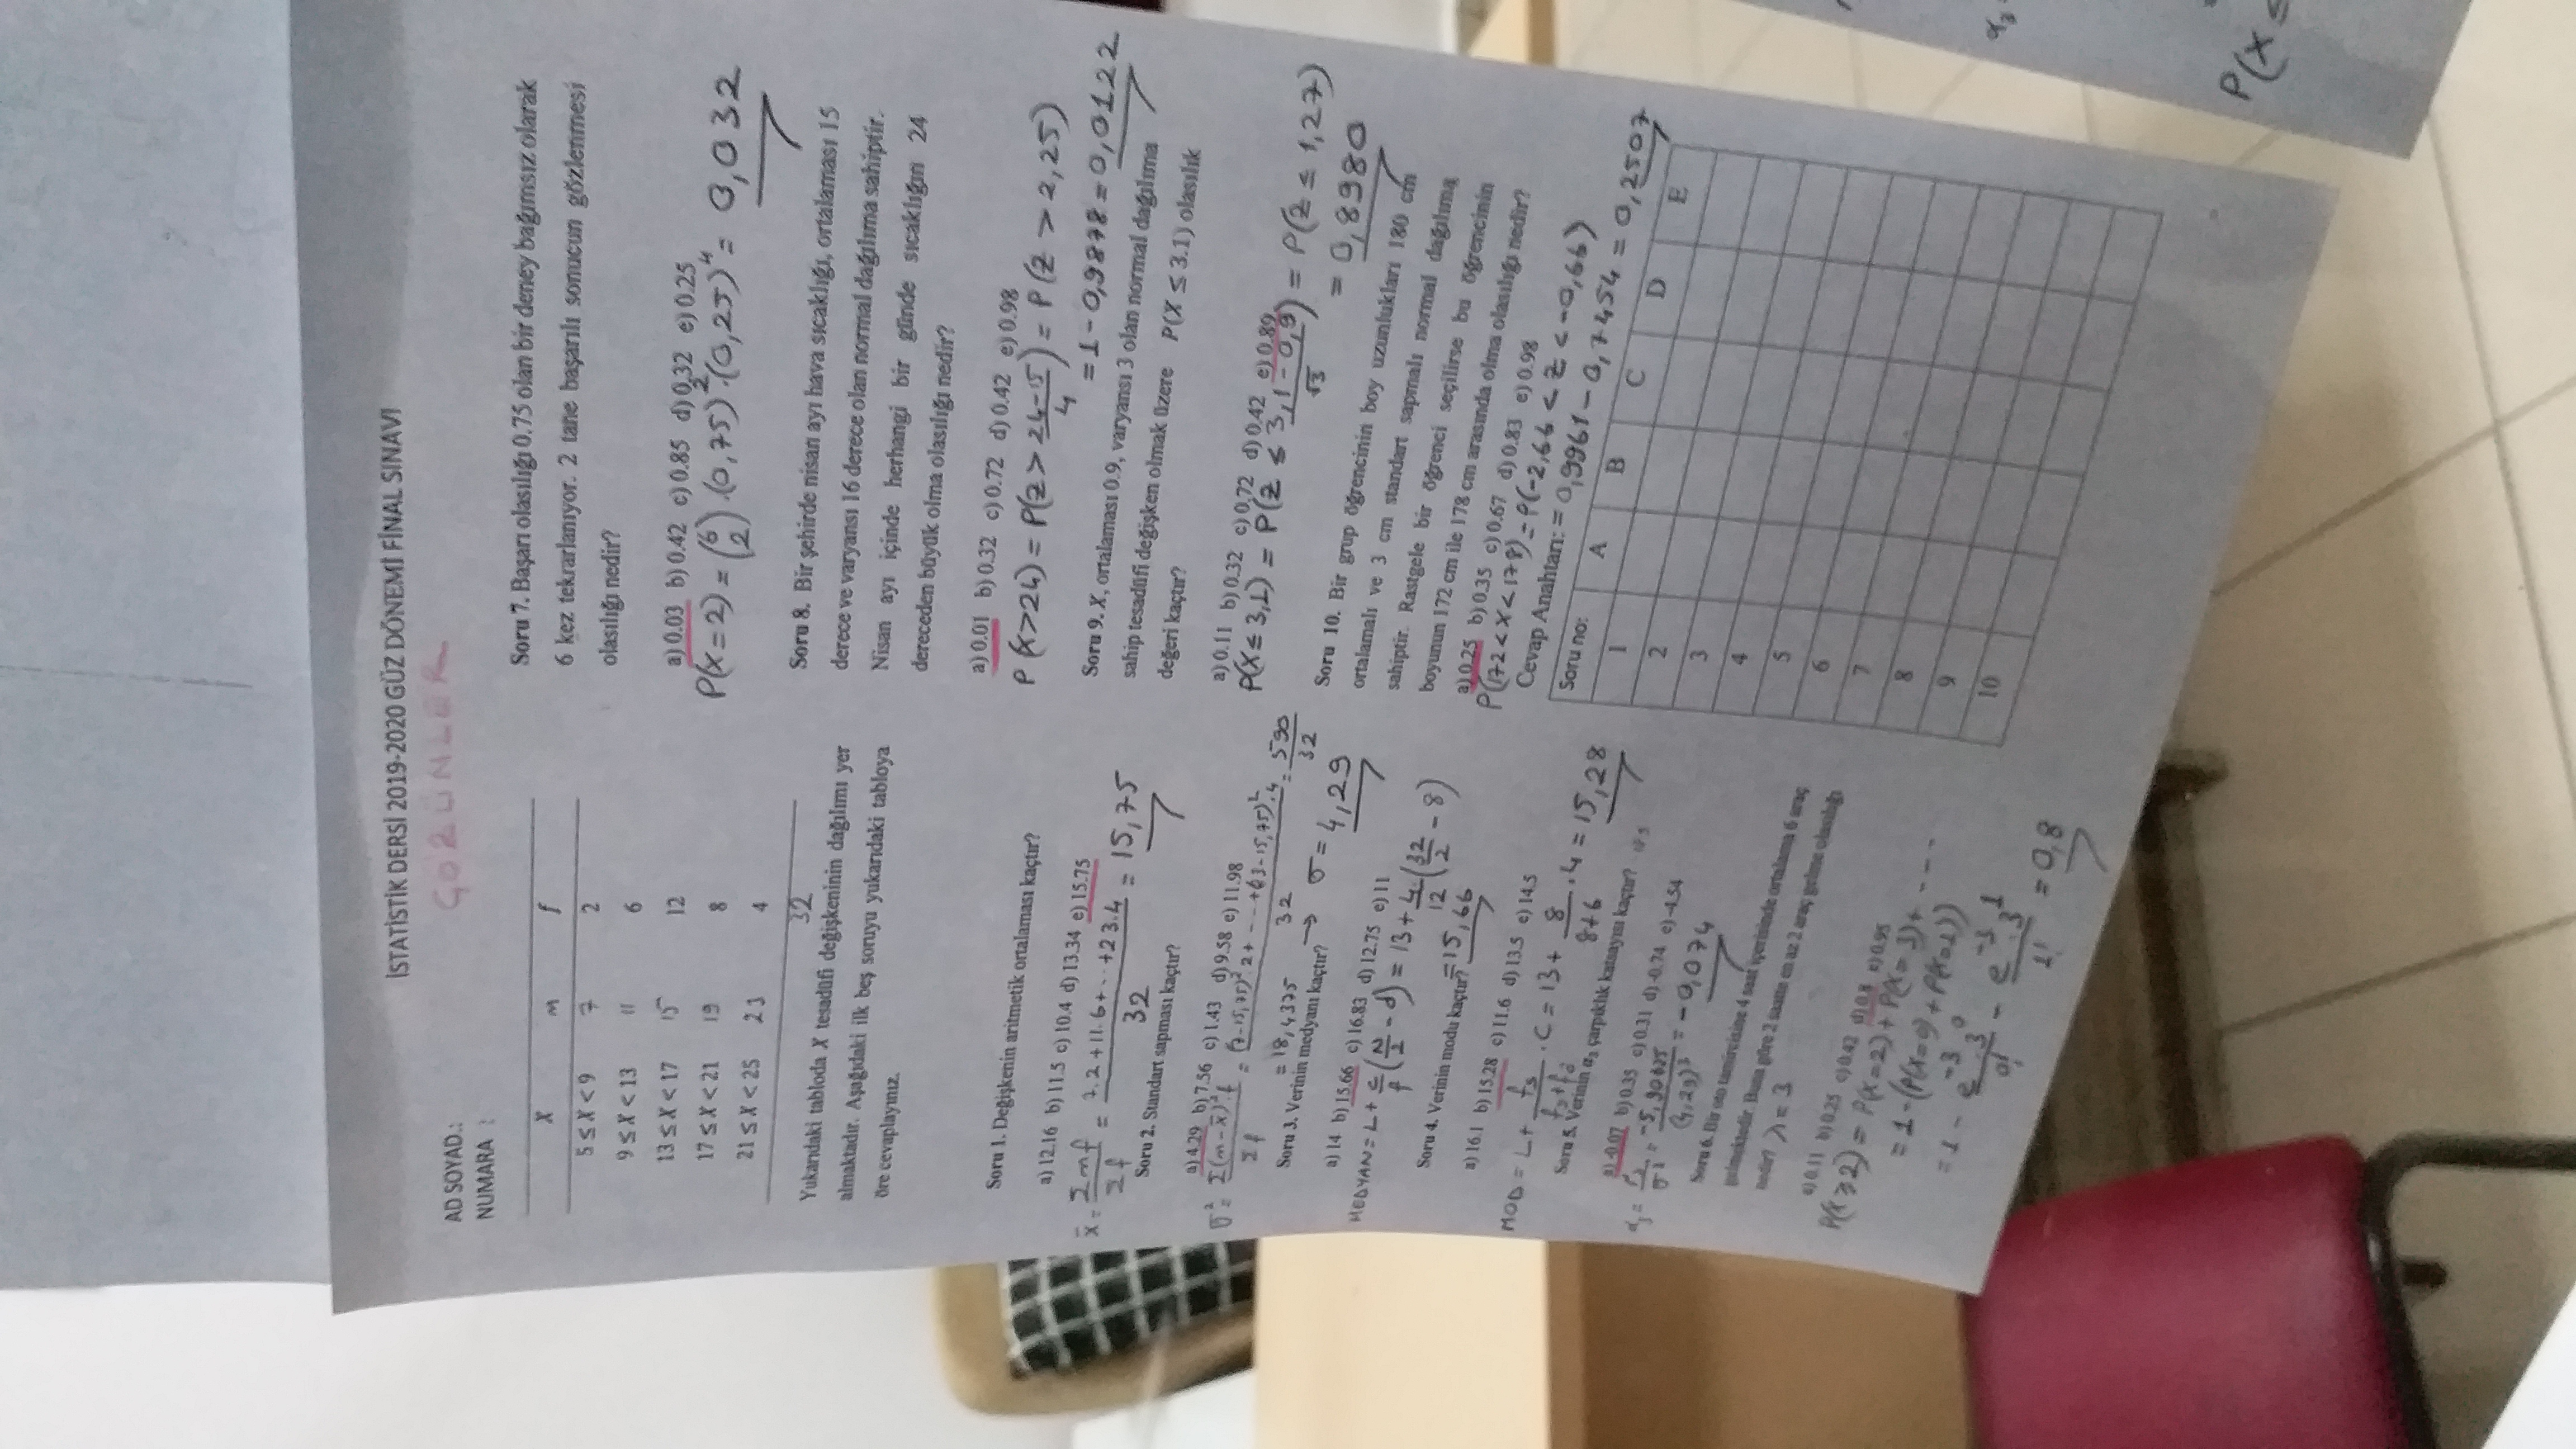 İSTATİSTİK DERSİ 2019-2020 GÜZ DÖNEMİ FİNAL SINAVI
ÇÖZÜMLER
AD SOYAD.:
NUMARA :
X m f
5 ≤ X < 9 7 2
9 ≤ X < 13 11 6
13 ≤ X < 17 15 12
17 ≤ X < 21 19 8
21 ≤ X < 25 23 4
32
Yukarıdaki tabloda X tesadüfi değişkeninin dağılımı yer
almaktadır. Aşağıdaki ilk beş soruyu yukarıdaki tabloya
öre cevaplayınız.
Soru 1. Değişkenin aritmetik ortalaması kaçtır?
a) 12.16 b) 11.5 c) 10.4 d) 13.34 e) 15.75
x̄ = Σmf / Σf = 7.2+11.6+...+23.4 / 32 = 15,75
Soru 2. Standart sapması kaçtır?
a) 4.29 b) 7.56 c) 1.43 d) 9.58 e) 11.98
σ² = Σ(m-x̄)².f / Σf = (7-15,75)².2+ ---- +(23-15,75)².4 / 32 = 590 / 32
= 18,4375 → σ = 4,29
Soru 3. Verinin medyanı kaçtır?
a) 14 b) 15.66 c) 16.83 d) 12.75 e) 11
MEDYAN = L + c/f (N/2 - d) = 13 + 4/12 . (32/2 - 8)
= 15,66
Soru 4. Verinin modu kaçtır?
a) 16.1 b) 15.28 c) 11.6 d) 13.5 e) 14.5
MOD = L + fs / fs+fö . C = 13 + 8 / 8+6 . 4 = 15,28
Soru 5. Verinin α₃ çarpıklık katsayısı kaçtır?
a) -0.07 b) 0.35 c) 0.31 d) -0.74 e) -4.54
α₃ = / σ³ = -5,90625 / (4,29)³ = -0,074
Soru 6. Bir oto tamircisine 4 saat içerisinde ortalama 6 araç
gelmektedir. Buna göre 2 saatte en az 2 araç gelme olasılığı
nedir? λ = 3
a) 0.11 b) 0.25 c) 0.42 d) 0.8 e) 0.95
P(X ≥ 2) = P(X=2) + P(X=3) + ----
= 1 - (P(X=0) + P(X=1))
= 1 - e⁻³.3⁰ / 0! - e⁻³.3¹ / 1! = 0,8
Soru 7. Başarı olasılığı 0.75 olan bir deney bağımsız olarak
6 kez tekrarlanıyor. 2 tane başarılı sonucun gözlenmesi
olasılığı nedir?
a) 0.03 b) 0.42 c) 0.85 d) 0.32 e) 0.25
P(X=2) = (6 2) . (0,75)² . (0,25)⁴ = 0,032
Soru 8. Bir şehirde nisan ayı hava sıcaklığı, ortalaması 15
derece ve varyansı 16 derece olan normal dağılıma sahiptir.
Nisan ayı içinde herhangi bir günde sıcaklığın 24
dereceden büyük olma olasılığı nedir?
a) 0.01 b) 0.32 c) 0.72 d) 0.42 e) 0.98
P(X>24) = P(Z > 24-15 / 4) = P(Z > 2,25)
= 1 - 0,9878 = 0,0122
Soru 9. X, ortalaması 0.9, varyansı 3 olan normal dağılıma
sahip tesadüfi değişken olmak üzere P(X ≤ 3.1) olasılık
değeri kaçtır?
a) 0.11 b) 0.32 c) 0.72 d) 0.42 e) 0.89
P(X ≤ 3,1) = P(Z ≤ 3,1-0,9 / √3) = P(Z ≤ 1,27)
= 0,8980
Soru 10. Bir grup öğrencinin boy uzunlukları 180 cm
ortalamalı ve 3 cm standart sapmalı normal dağılıma
sahiptir. Rastgele bir öğrenci seçilirse bu öğrencinin
boyunun 172 cm ile 178 cm arasında olma olasılığı nedir?
a) 0.25 b) 0.35 c) 0.67 d) 0.83 e) 0.98
P(172 < X < 178) = P(-2,66 < Z < -0,66)
= 0,9961 - 0,7454 = 0,2507
Cevap Anahtarı:
Soru no: A B C D E
1
2
3
4
5
6
7
8
9
10
α₃
P(X ≤